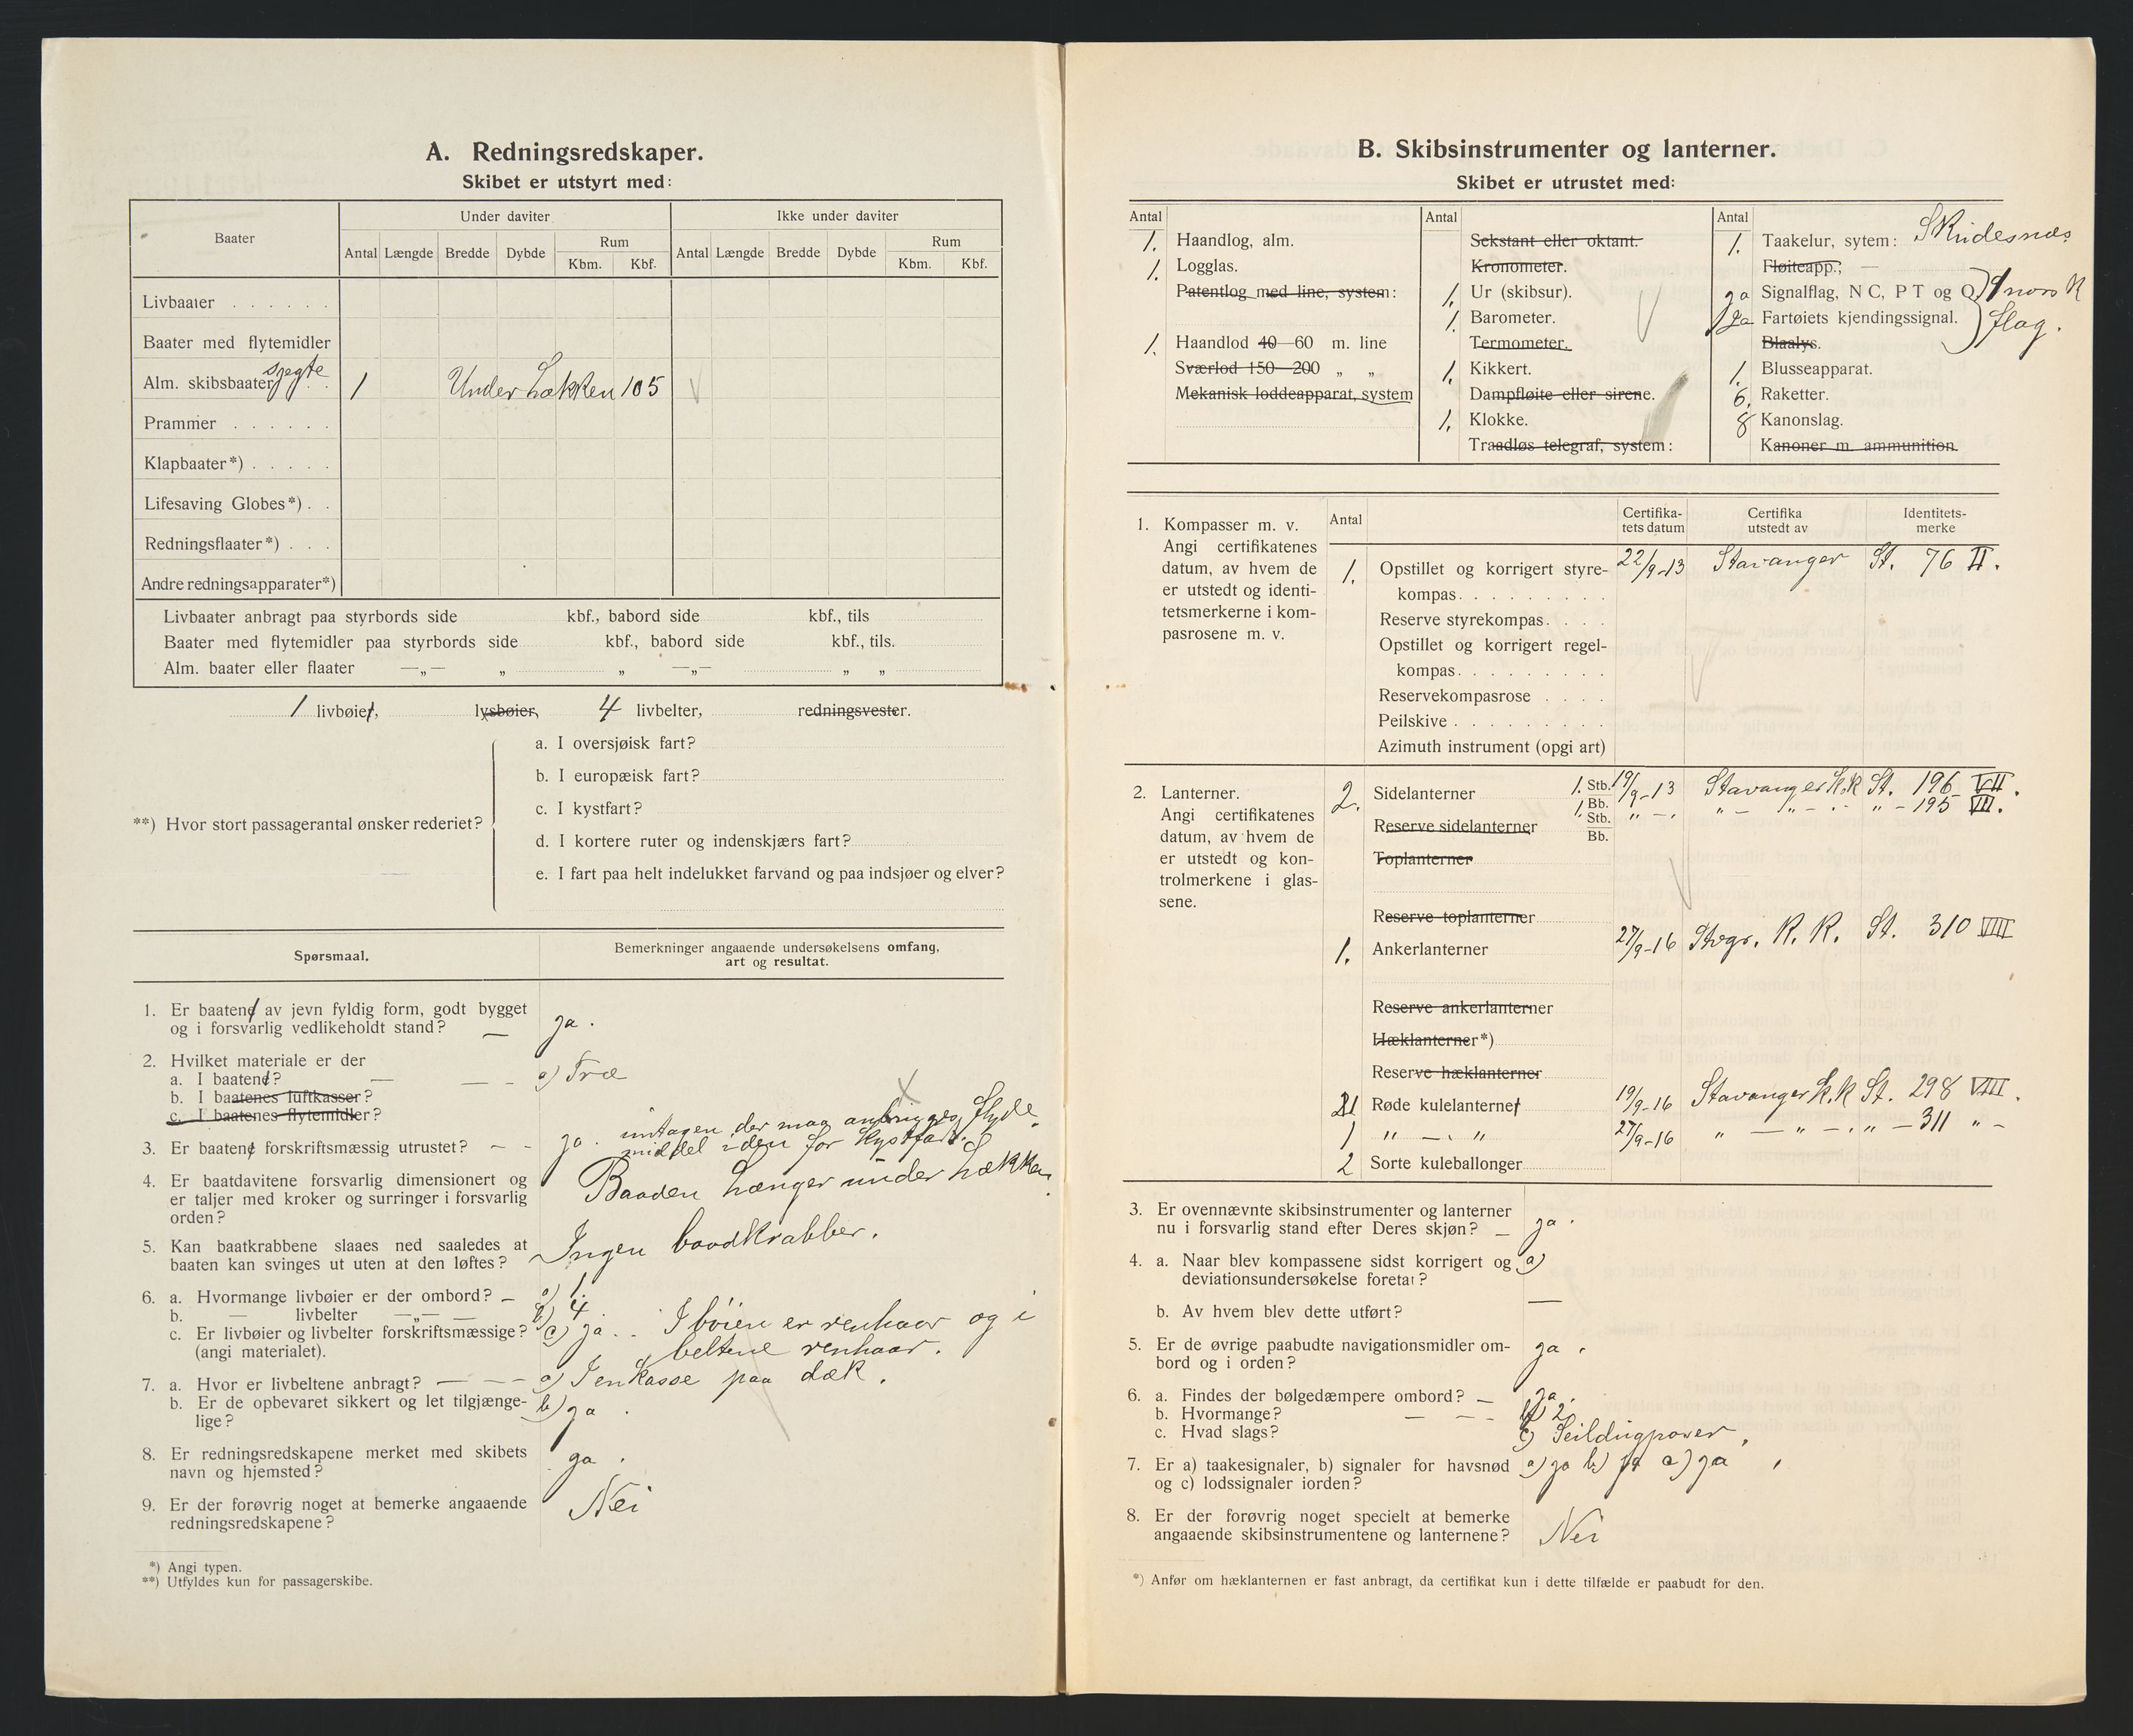 A. Redningsredskaper.
Skibet er utstyrt med:
Baater
Under daviter
Ikke under daviter
Antal Længde Bredde Dybde Rum Kbm. Kbf. Antal Længde Bredde Dybde Rum Kbm. Kbf.
Livbaater . . . . . .
Baater med flytemidler
Alm. skibsbaater sjegte 1 Under Hækken 105
Prammer . . . . . .
Klapbaater*) . . . . .
Lifesaving Globes*) . .
Redningsflaater*) . . .
Andre redningsapparater*)
Livbaater anbragt paa styrbords side kbf., babord side kbf., tils
Baater med flytemidler paa styrbords side kbf., babord side kbf., tils.
Alm. baater eller flaater —„— „ „ —„— „ „
1 livbøier, lysbøier, 4 livbelter, redningsvester.
**) Hvor stort passagerantal ønsker rederiet?
a. I oversjøisk fart?
b. I europæisk fart?
c. I kystfart?
d. I kortere ruter og indenskjærs fart?
e. I fart paa helt indelukket farvand og paa indsjøer og elver?
Spørsmaal.
Bemerkninger angaaende undersøkelsens omfang, art og resultat.
1. Er baatene av jevn fyldig form, godt bygget
og i forsvarlig vedlikeholdt stand? — ja.
2. Hvilket materiale er der
a. I baatene? — — - a) Træ
b. I baatenes luftkasser?
c. I baatenes flytemidler?
3. Er baatene forskriftsmæssig utrustet? — - ja. untagen der maa anbringes flyde-
middel i den for Kystfart.
4. Er baatdavitene forsvarlig dimensionert og
er taljer med kroker og surringer i forsvarlig
orden?
Baaden hænger under hækken.
5. Kan baatkrabbene slaaes ned saaledes at
baaten kan svinges ut uten at den løftes? Ingen baadkrabber.
6. a. Hvormange livbøier er der ombord? — a) 1.
b. — livbelter —„— — b) 4.
c. Er livbøier og livbelter forskriftsmæssige? c) ja. . I bøien er renhaar og i
(angi materialet). beltene renhaar.
7. a. Hvor er livbeltene anbragt? — — — a) I en Kasse paa dæk.
b. Er de opbevaret sikkert og let tilgjænge-
lige? b) ja.
8. Er redningsredskapene merket med skibets
navn og hjemsted? ja.
9. Er der forøvrig noget at bemerke angaaende
redningsredskapene? Nei
*) Angi typen.
**) Utfyldes kun for passagerskibe.
B. Skibsinstrumenter og lanterner.
Skibet er utrustet med:
Antal
1. Haandlog, alm.
1. Logglas.
Patentlog med line, system:
1. Haandlod 40—60 m. line
Sværlod 150—200 „ „
Mekanisk loddeapparat, system
Antal
Sekstant eller oktant.
Kronometer.
1. Ur (skibsur).
1. Barometer.
Termometer.
1. Kikkert.
Dampfløite eller sirene.
1. Klokke.
Traadløs telegraf, system:
Antal
1. Taakelur, sytem: Skudesnæs
Fløiteapp.; —
ja Signalflag, N C, P T og Q
Ja Fartøiets kjendingssignal.
norsk
flag.
Blaalys.
1. Blusseapparat.
6. Raketter.
8 Kanonslag.
Kanoner m ammunition.
1. Kompasser m. v.
Angi certifikatenes
datum, av hvem de
er utstedt og identi-
tetsmerkerne i kom-
pasrosene m. v.
Antal
Certifika-
tets datum
Certifika
utstedt av
Identitets-
merke
1. Opstillet og korrigert styre-
kompas. . . . . . . . . 22/9-13 Stavanger St. 76 II.
Reserve styrekompas. . . .
Opstillet og korrigert regel-
kompas. . . . . . . . .
Reservekompasrose . . . .
Peilskive . . . . . . . .
Azimuth instrument (opgi art)
2. Lanterner.
Angi certifikatenes
datum, av hvem de
er utstedt og kon-
trolmerkene i glas-
sene.
2. Sidelanterner 1. Stb. 19/9-13 Stavanger K.K St. 196 VII.
1. Bb. „ — „ — „ — „ — 195 VII.
Reserve sidelanterner Stb.
Bb.
Toplanterner
Reserve toplanterner
1. Ankerlanterner 27/9-16 Stvgr. K. K. St. 310 VIII
Reserve ankerlanterner
Hæklanterner*)
Reserve hæklanterner
1 Røde kulelanterner 19/9-16 Stavanger K.K St. 298 VIII.
1 „ — „ 27/9-16 „ — „ — „ — 311 „ —
2 Sorte kuleballonger
3. Er ovennævnte skibsinstrumenter og lanterner
nu i forsvarlig stand efter Deres skjøn? — ja.
4. a. Naar blev kompassene sidst korrigert og a)
deviationsundersøkelse foretat?
b. Av hvem blev dette utført? —
5. Er de øvrige paabudte navigationsmidler om-
bord og i orden? ja.
6. a. Findes der bølgedæmpere ombord? — ja.
b. Hvormange? — — - b) 2.
c. Hvad slags? c) Seildugposer.
7. Er a) taakesignaler, b) signaler for havsnød a) ja b) ja c) ja
og c) lodssignaler iorden?
8. Er der forøvrig noget specielt at bemerke
angaaende skibsinstrumentene og lanternene? Nei
*) Anfør om hæklanternen er fast anbragt, da certifikat kun i dette tilfælde er paabudt for den.